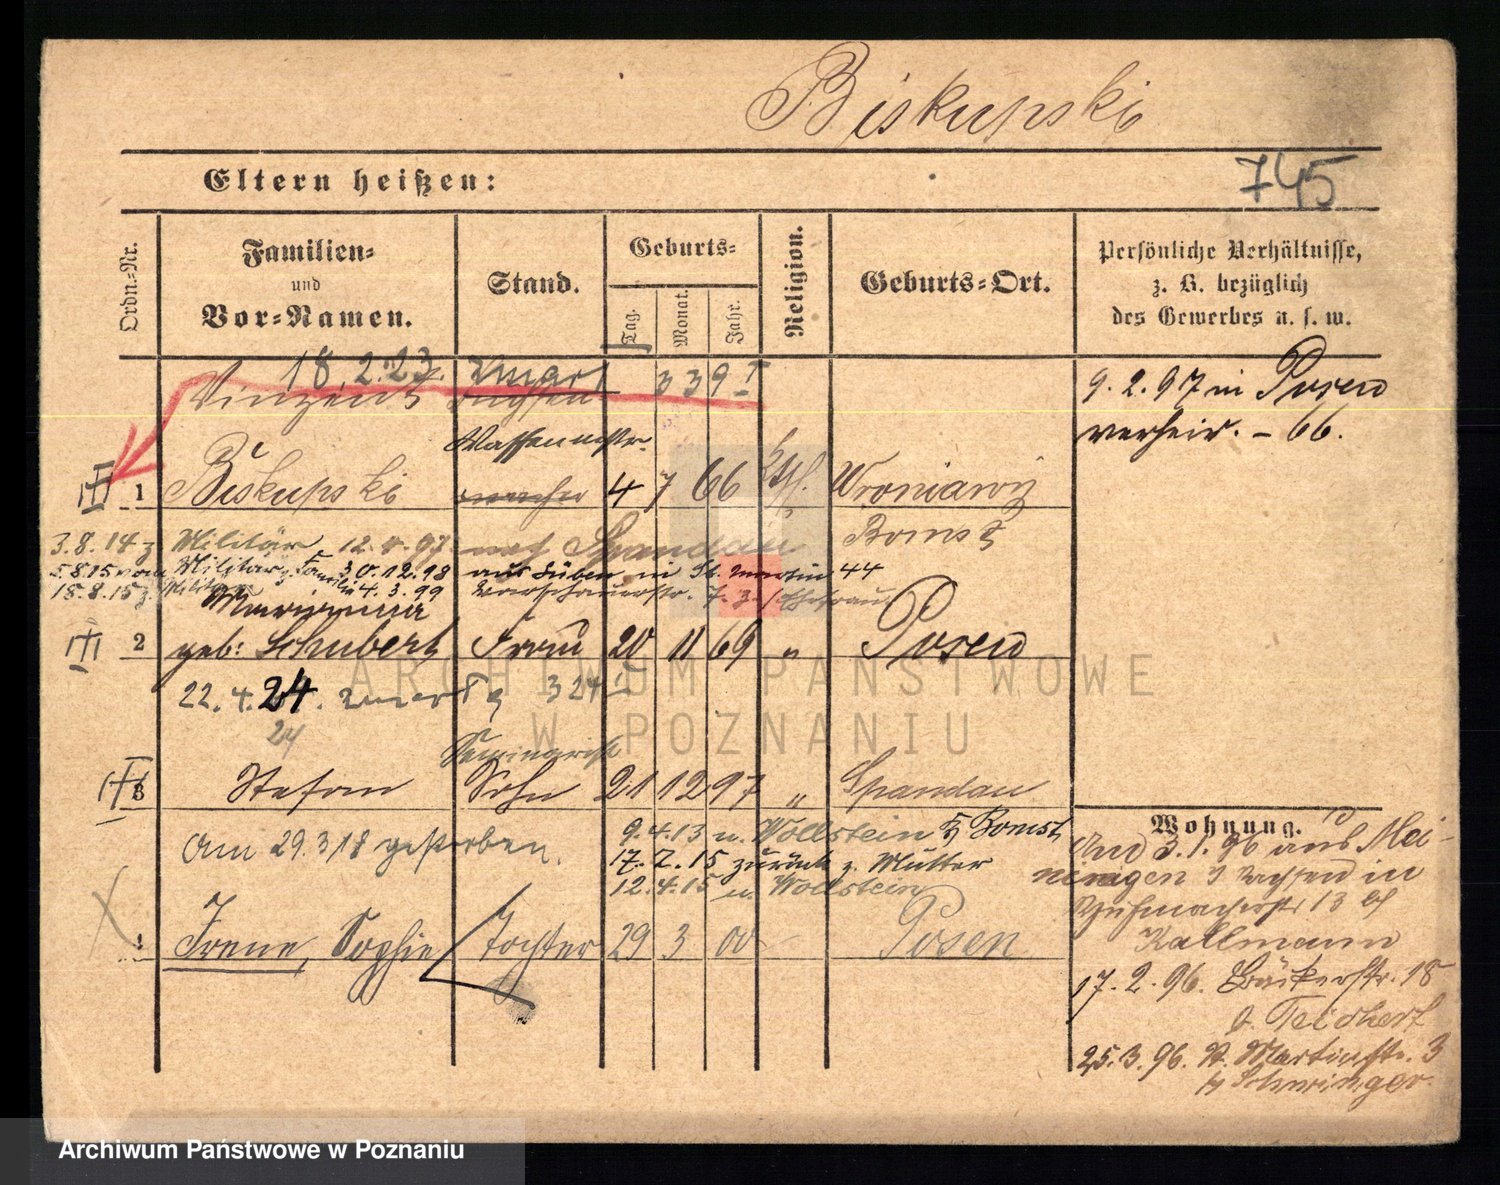 Biskupski
745
Eltern heißen:
Ordn.=Nr.
Familien=
und
Vor=Namen.
Stand.
Geburts=
Tag.
Monat.
Jahr.
Religion.
Geburts=Ort.
Persönliche Verhältnisse,
z. B. bezüglich
des Gewerbes u. s. w.
18.2.23. zmarł 339 I
Vinzent
9.2.97 in Posen
verheir. – 66.
1 Biskupski 4 7 66 Kth. Wroniawy
Bomst
3.8.14 z. Militär 12.4.97 nach Spandau
5.8.15 vom Militär z. Familie 30.12.98 aus Lüben in St. Martin 44
18.8.15 z. Militär 4.3.99
Marianna
2 geb: Schubert Frau 20 11 69 " Posen
22.4.24. zmarła 324 I
24
Seminarist
3 Stefan Sohn 21 12 97 " Spandau
am 29.3.18 gestorben.
9.4.13 n. Wollstein Bomst
17.2.15 zurück z. Mutter
12.4.15 n. Wollstein
Irene, Sophie Tochter 29 3 00 Posen
Wohnung.
3.1.96 aus Mei-
ningen Sachsen in
13 b/
Kallmann
17.2.96. Bäckerstr. 18
b. Teichert
25.3.96. St. Martinstr. 3
ARCHIWUM PAŃSTWOWE
W POZNANIU
Archiwum Państwowe w Poznaniu